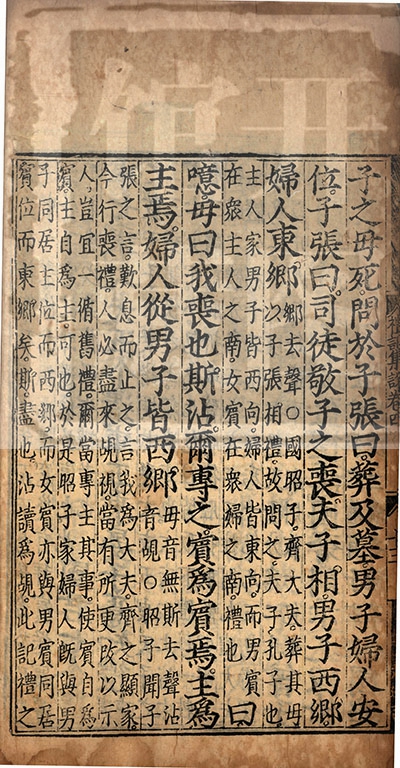 子之毋死問於子張曰。葬及墓。男子婦人安
位。子張曰。司徒敬子之喪。夫子相。男子西鄉。
婦人東鄉
鄉去聲〇國昭子。齊大夫。葬其母
以子張相禮。故問之。夫子。孔子也。
主人家男子皆西向。婦人皆東向。而男賓
在衆主人之南。女賓在衆婦之南。禮也
曰。
噫。毋曰我喪也斯沾。爾專之。賓為賓焉。主為
主焉。婦人從男子皆西鄉。
毋音無斯去聲沾
音覘〇昭子聞子
張之言。歎息而止之。言我為大夫。齊之顯家。
今行喪禮。人必盡來覘視。當有所更改以示
人。豈宜一循舊禮。爾當專主其事。使賓自為
賓。主自為主。可也。於是昭子家婦人既與男
子同居主位而西鄉。而女賓亦與男賓同居
賓位而東鄉矣。斯。盡也。沾讀為覘。此記禮之